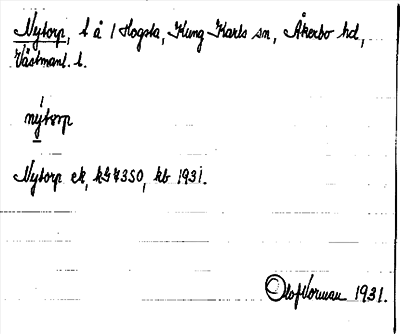 Nytorp, t å 1 Hogsta, Kung Karls sn, Åkerbo hd,
Västmanl. l.
nytorp
Nytorp ek, kb 1931.
Olof Vorman 1931.